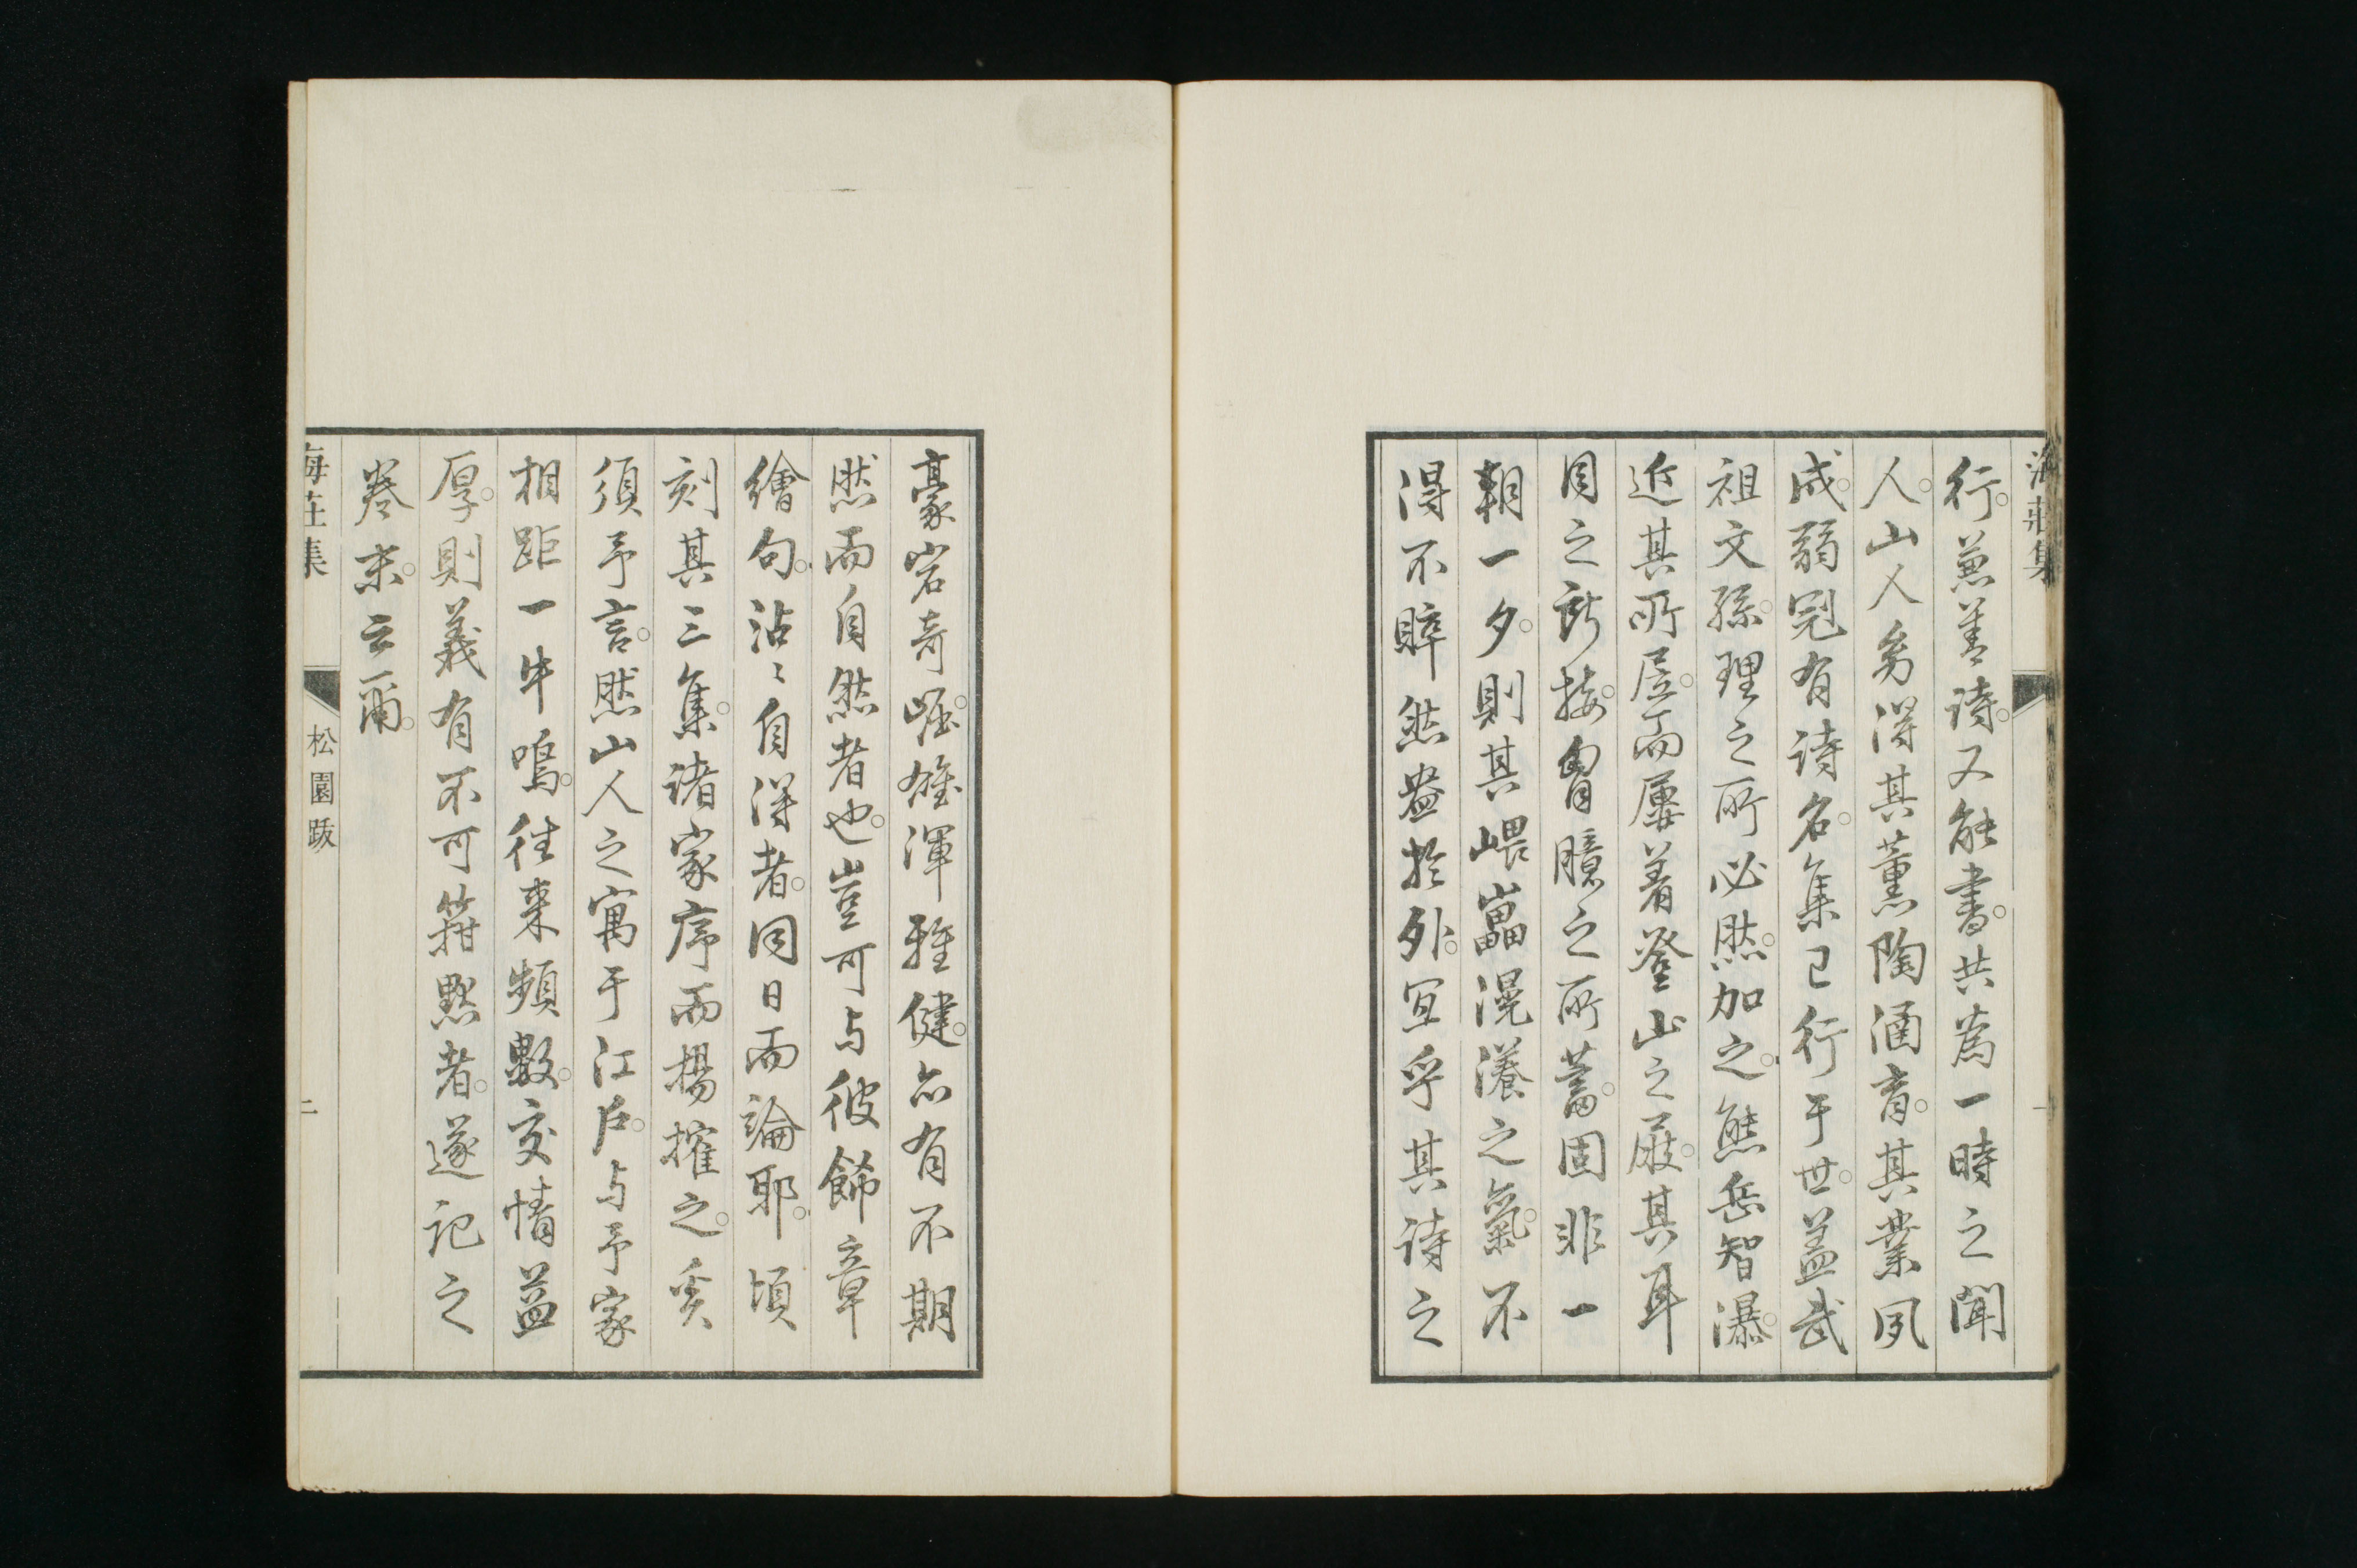 海莊集
行。兼善詩。又能書。共為一時之聞
人。山人多得其薰陶涵育。其業夙
成。弱冠有詩名。集已行于世。蓋武
祖文孫。理之所必然。加之。熊岳智瀑。
近其所居。而屢着登山之屐。其耳
目之所接。胷臆之所蓄。固非一
朝一夕。則其嵔㠥滉瀁之氣。不
得不睟然盎於外。宜乎其詩之
豪宕奇崛。雄渾雅健。亦有不期
然而自然者也。豈可与彼飾章
繪句。沾〻自得者。同日而論耶。頃
刻其三集。諸家序而揚搉之。奚
須予言。然山人之寓于江戶。与予家
相距一牛鳴。往來頻數。交情益
厚。則義有不可箝默者。遂記之
卷末。云爾。
海莊集
松園跋
二